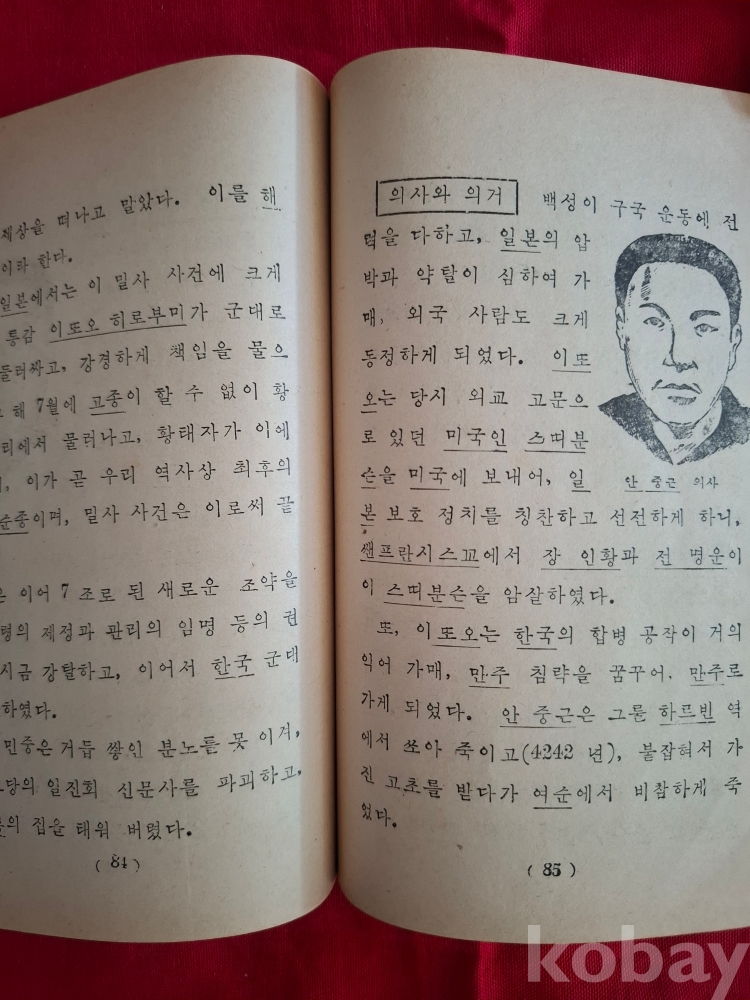 세상을 떠나고 말았다. 이를 해
이라 한다.
일본에서는 이 밀사 사건에 크게
통감 이또오 히로부미가 군대로
둘러싸고, 강경하게 책임을 물으
해 7월에 고종이 할 수 없이 황
리에서 물러나고, 황태자가 이에
이가 곧 우리 역사상 최후의
순종이며, 밀사 사건은 이로써 끝
은 이어 7 조로 된 새로운 조약을
령의 제정과 관리의 임명 등의 권
시금 강탈하고, 이어서 한국 군대
하였다.
민중은 거듭 쌓인 분노를 못 이겨,
당의 일진회 신문사를 파괴하고,
들의 집을 태워 버렸다.
( 84 )
의사와 의거 백성이 구국 운동에 전
력을 다하고, 일본의 압
박과 약탈이 심하여 가
매, 외국 사람도 크게
동정하게 되었다. 이또
오는 당시 외교 고문으
로 있던 미국인 스띠븐
슨을 미국에 보내어, 일
안 중근 의사
본 보호 정치를 칭찬하고 선전하게 하니,
쌘프란시스꼬에서 장 인황과 전 명운이
이 스띠븐슨을 암살하였다.
또, 이또오는 한국의 합병 공작이 거의
익어 가매, 만주 침략을 꿈꾸어, 만주로
가게 되었다. 안 중근은 그를 하르빈 역
에서 쏘아 죽이고(4242 년), 붙잡혀서 가
진 고초를 받다가 여순에서 비참하게 죽
었다.
( 85 )
kobay